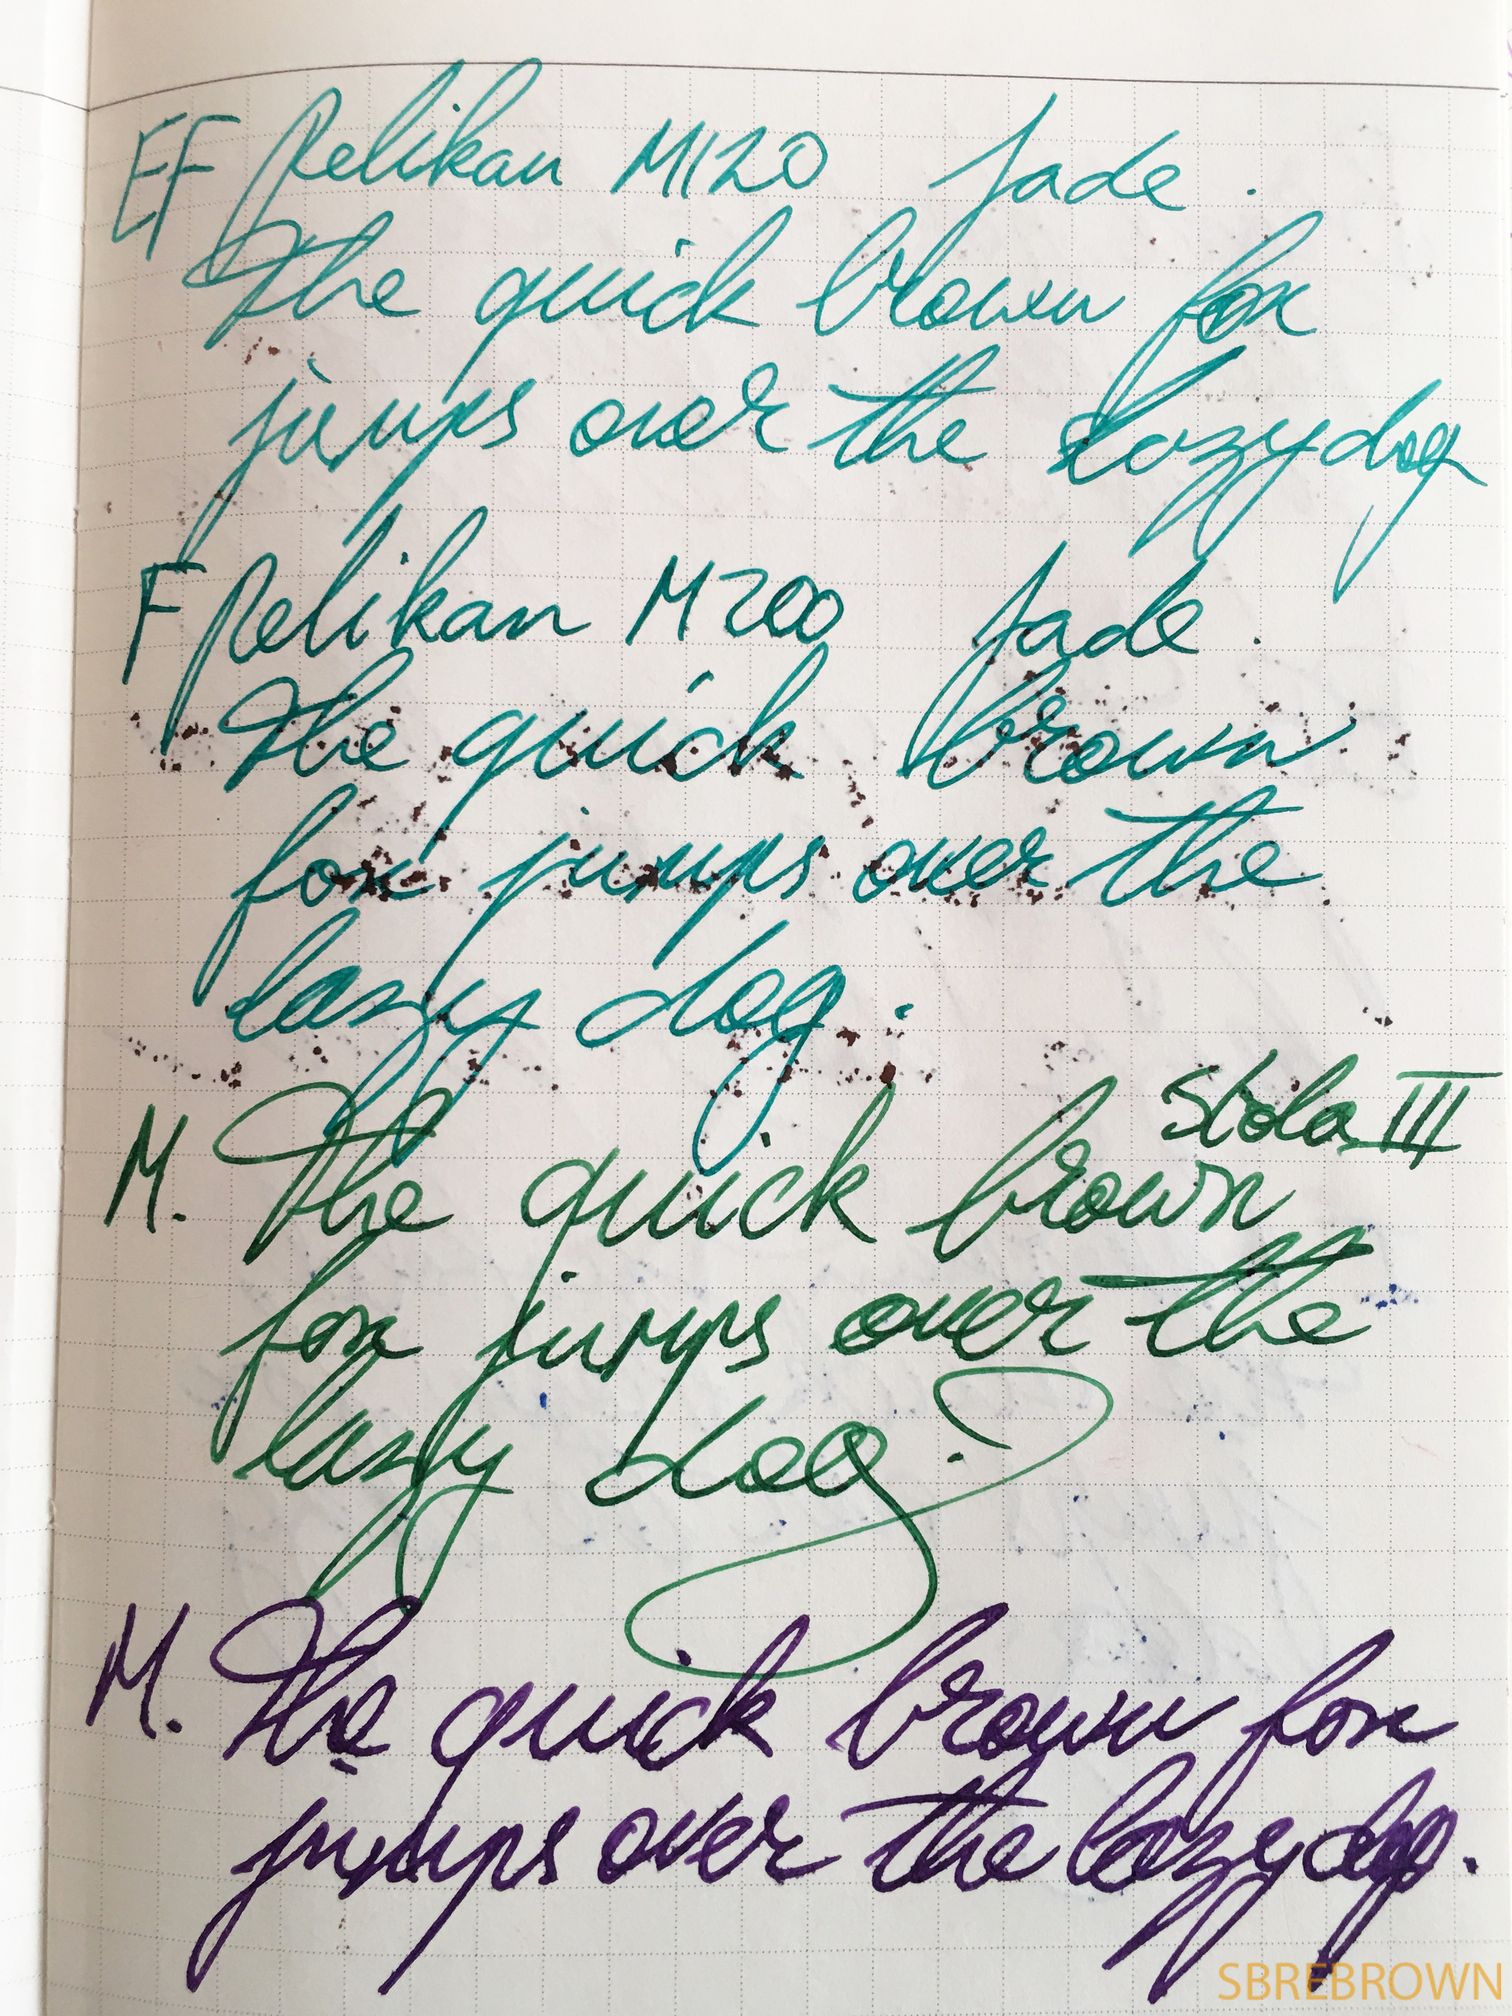 EF Pelikan M120 Jade.
The quick brown fox
jumps over the lazy dog
F Pelikan M200 Jade.
The quick brown
fox jumps over the
lazy dog.
Stola III
M. The quick brown
fox jumps over the
lazy dog.
M. The quick brown fox
jumps over the lazy dog.
SBREBROWN